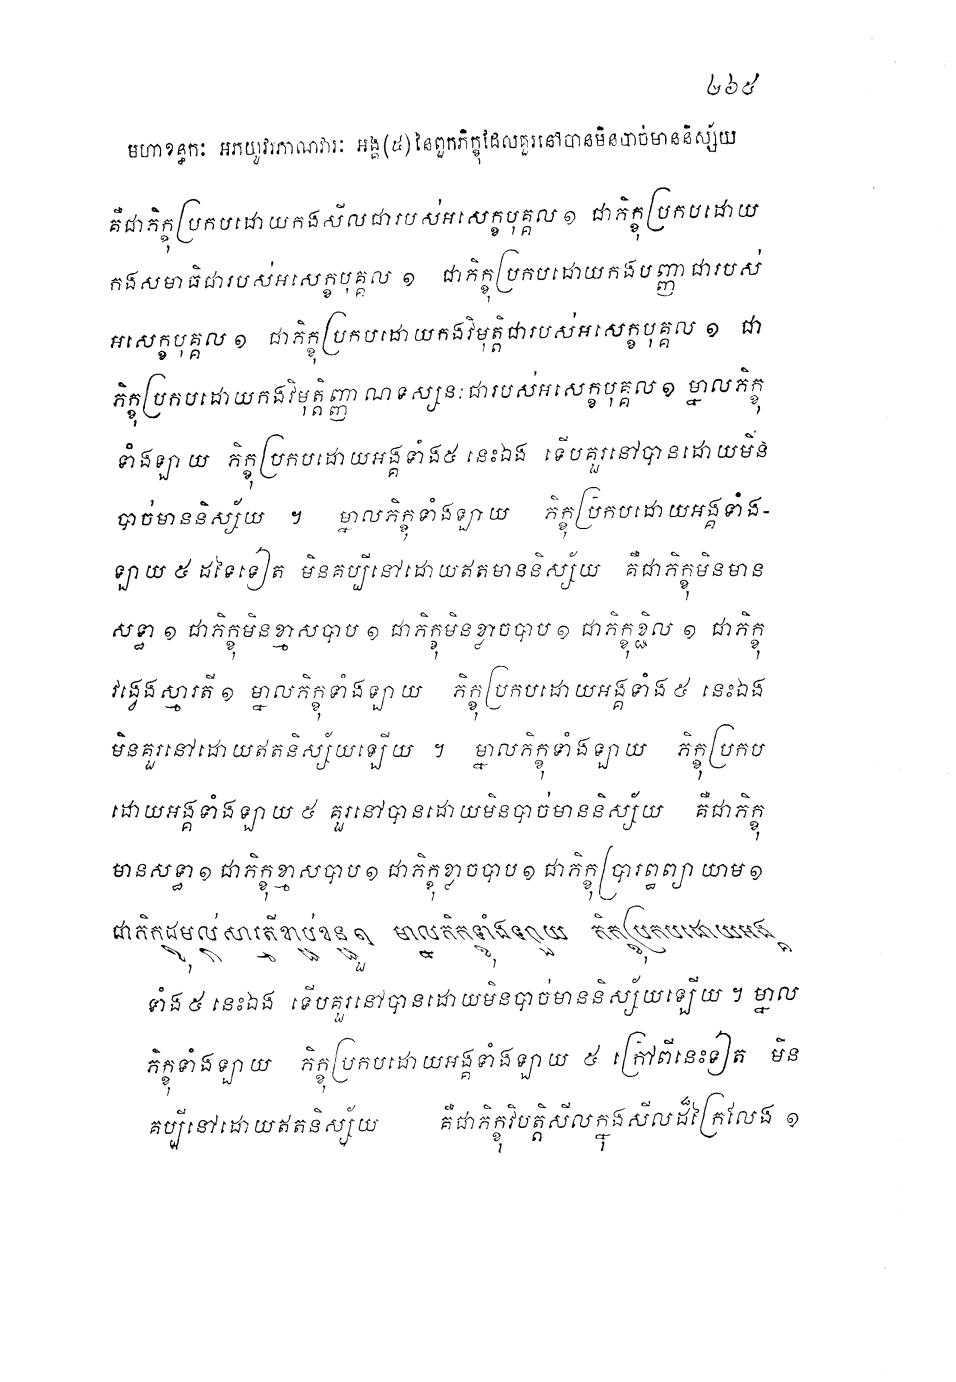 ២៦៥
មហាខន្ធកៈ អភយូវរភាណវារៈ អង្គ(៥)នៃពួកភិក្ខុដែលគួរនៅបានមិនបាច់មាននិស្ស័យ
គឺជាភិក្ខុប្រកបដោយកងសីលជារបស់អសេក្ខបុគ្គល ១ ជាភិក្ខុប្រកបដោយ
កងសមាធិជារបស់អសេក្ខបុគ្គល ១ ជាភិក្ខុប្រកបដោយកងបញ្ញាជារបស់
អសេក្ខបុគ្គល ១ ជាភិក្ខុប្រកបដោយកងវិមុត្តិជារបស់អសេក្ខបុគ្គល ១ ជា
ភិក្ខុប្រកបដោយកងវិមុត្តិញ្ញាណទស្សនៈជារបស់អសេក្ខបុគ្គល ១ ម្នាលភិក្ខុ
ទាំងឡាយ ភិក្ខុប្រកបដោយអង្គទាំង៥ នេះឯង ទើបគួរនៅបានដោយមិន
បាច់មាននិស្ស័យ ។ ម្នាលភិក្ខុទាំងឡាយ ភិក្ខុប្រកបដោយអង្គទាំង-
ឡាយ ៥ ដទៃទៀត មិនគប្បីនៅដោយឥតមាននិស្ស័យ គឺជាភិក្ខុមិនមាន
សទ្ធា ១ ជាភិក្ខុមិនខ្មាសបាប ១ ជាភិក្ខុមិនខ្លាចបាប ១ ជាភិក្ខុខ្ជិល ១ ជាភិក្ខុ
វង្វេងស្មារតី ១ ម្នាលភិក្ខុទាំងឡាយ ភិក្ខុប្រកបដោយអង្គទាំង ៥ នេះឯង
មិនគួរនៅដោយឥតនិស្ស័យឡើយ ។ ម្នាលភិក្ខុទាំងឡាយ ភិក្ខុប្រកប
ដោយអង្គទាំងឡាយ ៥ គួរនៅបានដោយមិនបាច់មាននិស្ស័យ គឺជាភិក្ខុ
មានសទ្ធា ១ ជាភិក្ខុខ្មាសបាប ១ ជាភិក្ខុខ្លាចបាប ១ ជាភិក្ខុប្រារព្ធព្យាយាម ១
ជាភិក្ខុដម្កល់ស្មារតីខ្ជាប់ខ្ជួន ១ ម្នាលភិក្ខុទាំងឡាយ ភិក្ខុប្រកបដោយអង្គ
ទាំង ៥ នេះឯង ទើបគួរនៅបានដោយមិនបាច់មាននិស្ស័យឡើយ ។ ម្នាល
ភិក្ខុទាំងឡាយ ភិក្ខុប្រកបដោយអង្គទាំងឡាយ ៥ ក្រៅពីនេះទៀត មិន
គប្បីនៅដោយឥតនិស្ស័យ គឺជាភិក្ខុវិបត្តិសីលក្នុងសីលដ៏ក្រៃលែង ១